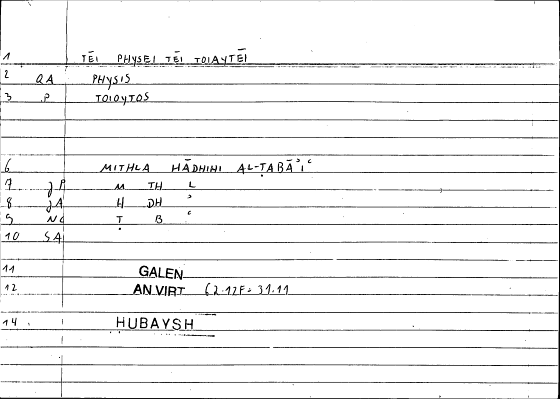 1 TĒI PHYSEI TĒI TOIAYTĒI
2 QA PHYSIS
3 P TOIOYTOS
6 MITHLA HĀDHIHI AL-ṬABĀʾIʿ
7 JP M TH L
8 JA H DH ʾ
9 NC Ṭ B ʿ
10 SA
11 GALEN
12 AN VIRT 62.12F = 31.11
14 HUBAYSH